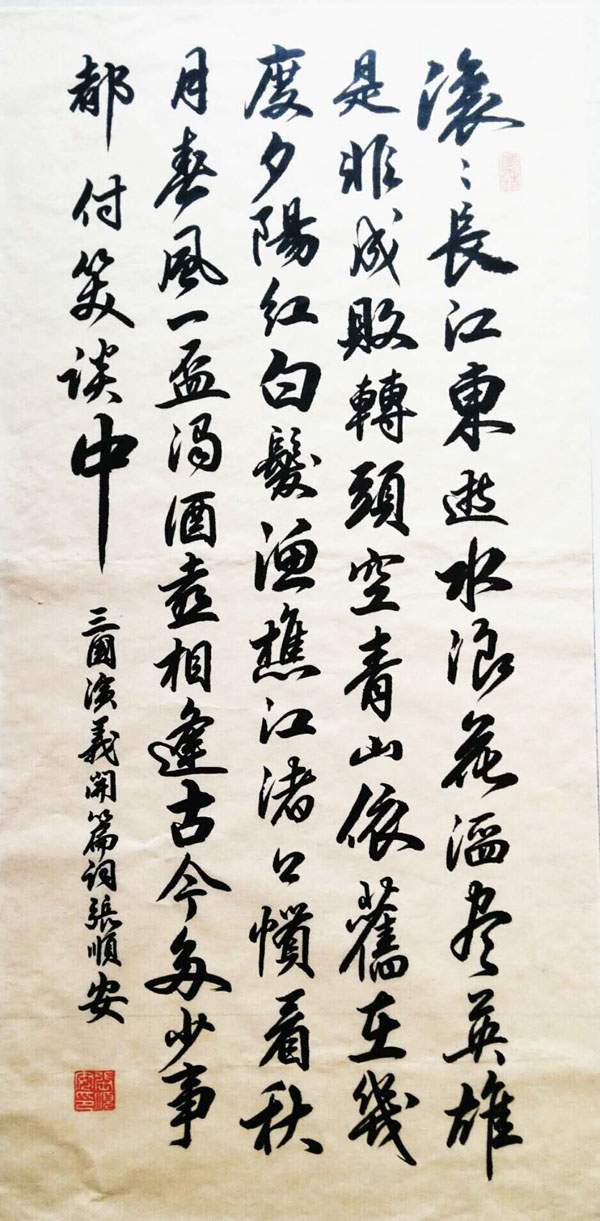 滚〻長江東逝水浪花滔尽英雄
是非成敗轉頭空青山依舊在幾
度夕陽紅白髮漁樵江渚上慣看秋
月春風一壺濁酒喜相逢古今多少事
都付笑談中
三國演義開篇詞張順安
張順安印